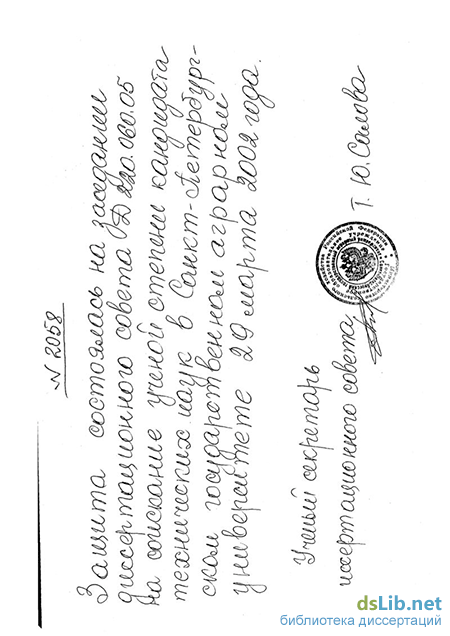 N 2058
Защита состоялась на заседании
диссертационного совета Д 220.060.05
на соискание ученой степени кандидата
технических наук в Санкт-Петербург-
ском государственном аграрном
университете 29 марта 2002 года.
Ученый секретарь
иссертационного совета Т. Ю. Салова
Российской Федерации
dsLib.net
библиотека диссертаций